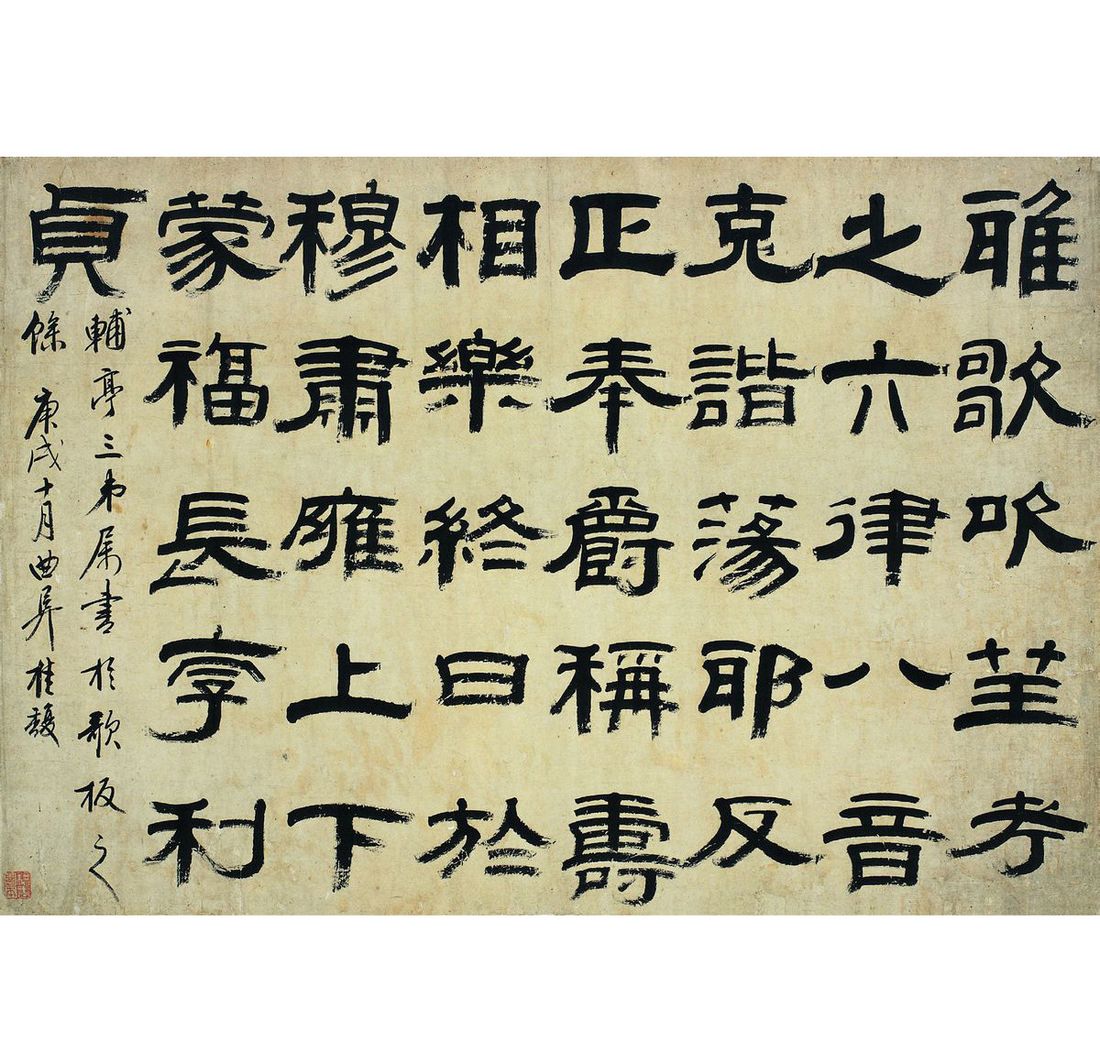 雅歌吹笙考
之六律八音
克諧蕩邪反
正奉爵稱壽
相樂終日於
穆肅雍上下
蒙福長享利
貞
輔亭三弟属書於歌板之
餘 庚戌十月曲阜桂馥